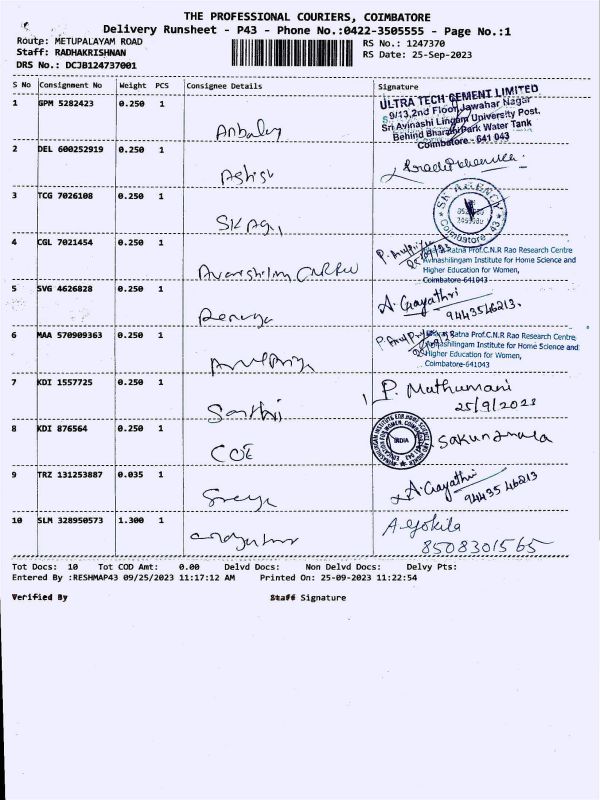 THE PROFESSIONAL COURIERS, COIMBATORE
Delivery Runsheet - P43 - Phone No.:0422-3505555 - Page No.:1
Route: METUPALAYAM ROAD RS No.: 1247370
Staff: RADHAKRISHNAN RS Date: 25-Sep-2023
DRS No.: DCJB124737001
S No Consignment No Weight PCS Consignee Details Signature
1 GPM 5282423 0.250 1
ULTRA TECH CEMENT LIMITED
9/13,2nd Floor,Jawahar Nagar
Sri Avinashi Lingam University Post,
Behind Bharathi Park Water Tank
Coimbatore - 641 043
2 DEL 600252919 0.250 1 Ashish
3 TCG 7026108 0.250 1 SK Ag
SK AGENCY
Coimbatore - 43
4 CGL 7021454 0.250 1
Ratna Prof.C.N.R Rao Research Centre
Avinashilingam Institute for Home Science and
Higher Education for Women,
Coimbatore-641043
5 SVG 4626828 0.250 1 Renuga A. Gayathri
9443546213.
6 MAA 570909363 0.250 1 Arulpriya
Ratna Prof.C.N.R Rao Research Centre,
Avinashilingam Institute for Home Science and
Higher Education for Women,
Coimbatore-641043
7 KDI 1557725 0.250 1 P. Muthumani
25/9/2023
8 KDI 876564 0.250 1 COE INDIA Sakunthala
9 TRZ 131253887 0.035 1 A. Gayathri
94435 46213
10 SLM 328950573 1.300 1 A. Gokila
8508301565
Tot Docs: 10 Tot COD Amt: 0.00 Delvd Docs: Non Delvd Docs: Delvy Pts:
Entered By :RESHMAP43 09/25/2023 11:17:12 AM Printed On: 25-09-2023 11:22:54
Verified By Staff Signature